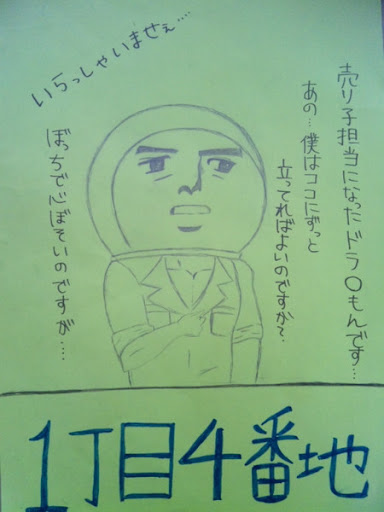 いらっしゃいませぇ‥‥
売り子担当になったドラ〇もんです…
あの…僕はココにずっと
立ってればよいのですか?
ぼっちで心ぼそいのですが‥‥
1丁目4番地